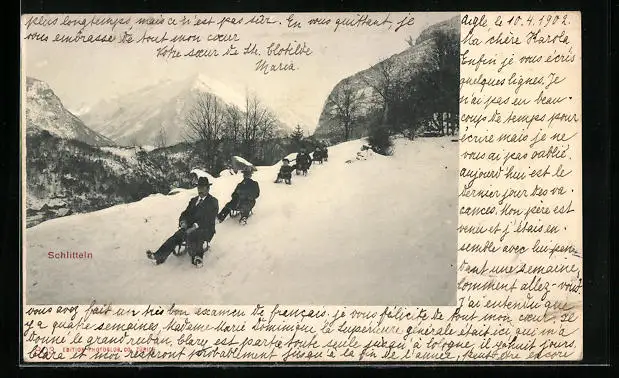 Aigle le 10.4.1902.
Ma chère Karola
Enfin je vous écris
quelques lignes. Je
n'ai pas eu beau-
coup de temps pour
écrire mais je ne
vous ai pas oublié.
aujourd'hui est le
dernier jour des va-
cances. Mon père est
venu et j'étais en-
semble avec lui pen-
dant une semaine,
comment allez-vous
J'ai entendu que
vous avez fait un très bon examen de français. je vous félicite de tout mon cœur. Il
y a quatre semaines, Madame Marie Dominique la supérieure générale était ici qui m'a
donné le grand ruban. Clary est partie toute seule jusqu'à
Clary et moi resteront probablement jusqu'à la fin de l'année, peut-être encore
plus longtemps, mais ce n'est pas sûr. En vous quittant je
vous embrasse de tout mon cœur
Votre sœur de St. Clotilde
Maria
Schlitteln
EDITION PHOTOGLOB CO. ZÜRICH